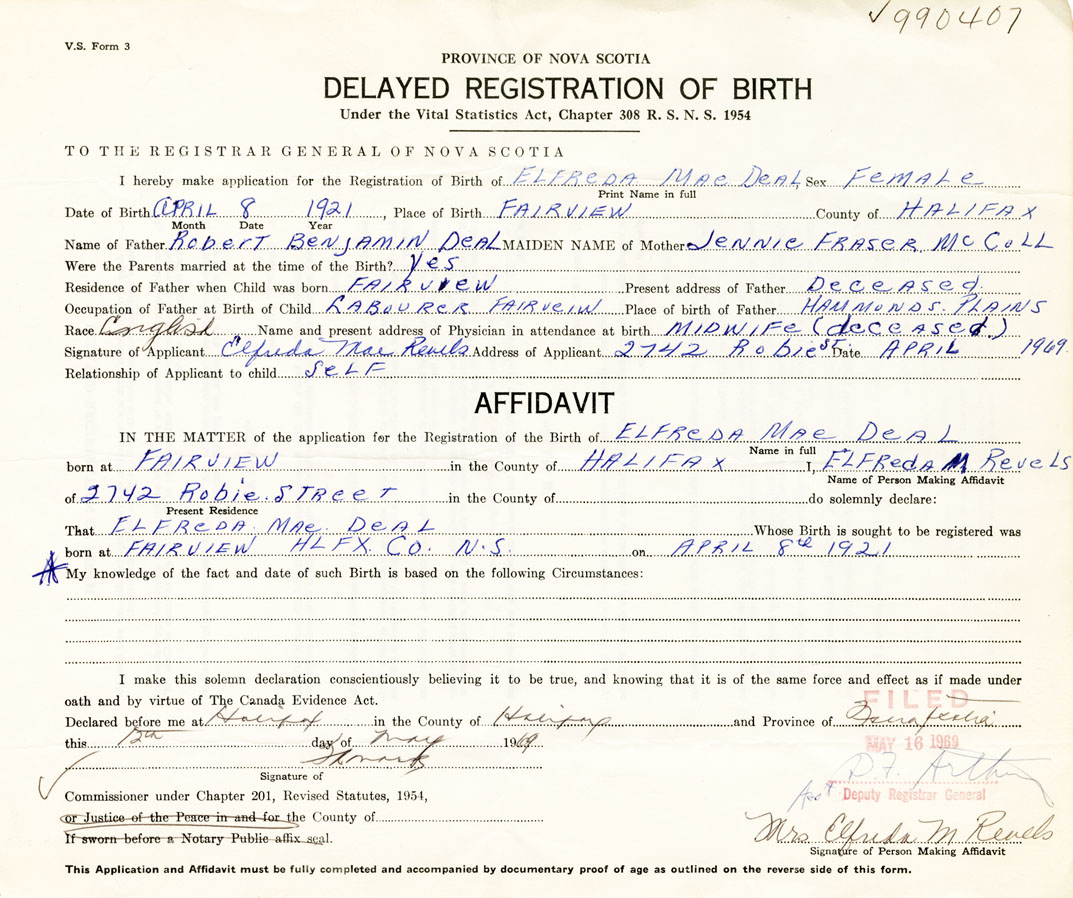 ✓990407
V.S. Form 3
PROVINCE OF NOVA SCOTIA
DELAYED REGISTRATION OF BIRTH
Under the Vital Statistics Act, Chapter 308 R. S. N. S. 1954
TO THE REGISTRAR GENERAL OF NOVA SCOTIA
I hereby make application for the Registration of Birth of ELFREDA MAE DEAL Sex FEMALE
Print Name in full
Date of Birth APRIL 8 1921, Place of Birth FAIRVIEW County of HALIFAX
Month Date Year
Name of Father ROBERT BENJAMIN DEAL MAIDEN NAME of Mother JENNIE FRASER McCOLL
Were the Parents married at the time of the Birth? Yes
Residence of Father when Child was born FAIRVIEW Present address of Father DECEASED.
Occupation of Father at Birth of Child LABOURER FAIRVEIW Place of birth of Father HAMMONDS. PLAINS
Race English Name and present address of Physician in attendance at birth MIDWIFE (deceased)
Signature of Applicant Elfreda Mae Revels Address of Applicant 2742 Robie St. Date APRIL 1969.
Relationship of Applicant to child SELF
AFFIDAVIT
IN THE MATTER of the application for the Registration of the Birth of ELFREDA MAE DEAL
Name in full
born at FAIRVIEW in the County of HALIFAX I, ELFREDA M REVELS
Name of Person Making Affidavit
of 2742 Robie. STREET in the County of do solemnly declare:
Present Residence
That ELFREDA. MAE. DEAL Whose Birth is sought to be registered was
born at FAIRVIEW HLFX. CO. N.S. on APRIL 8th 1921
My knowledge of the fact and date of such Birth is based on the following Circumstances:
I make this solemn declaration conscientiously believing it to be true, and knowing that it is of the same force and effect as if made under
oath and by virtue of The Canada Evidence Act.
FILED
Declared before me at Halifax in the County of Halifax and Province of Nova Scotia
this day of May 1969
MAY 16 1969
Signature of
D.F. Arthur
Deputy Registrar General
Commissioner under Chapter 201, Revised Statutes, 1954,
or Justice of the Peace in and for the County of
If sworn before a Notary Public affix seal.
Mrs Elfreda M Revels
Signature of Person Making Affidavit
This Application and Affidavit must be fully completed and accompanied by documentary proof of age as outlined on the reverse side of this form.